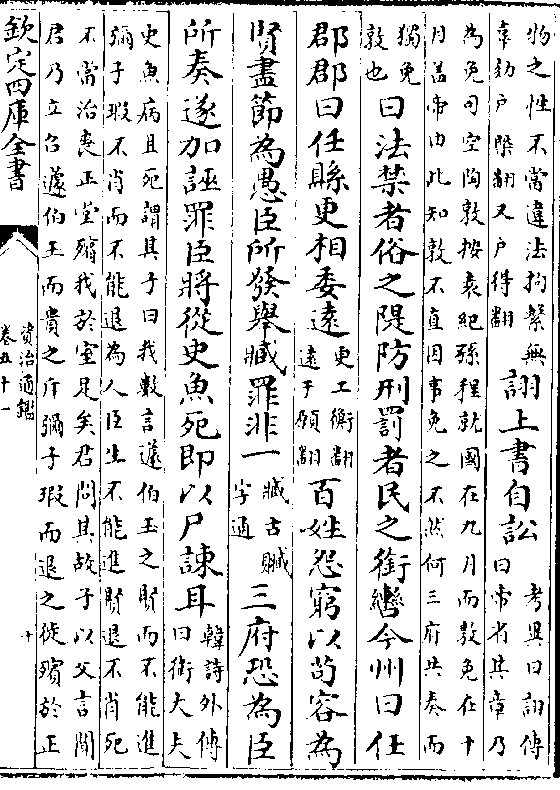 物之性不當違法拘繫無
辜劾戶槩翻又戶得翻
詡上書自訟
考異曰詡傳
曰帝省其章乃
為免司空陶敦按袁紀孫程就國在九月而敦免在十
月盖帝由此知敦不直因事免之不然何三府共奏而
獨免
敦也
曰法禁者俗之隄防刑罰者民之銜轡今州曰任
郡郡曰任縣更相委遠
更工衡翻
遠于願翻
百姓怨窮以苟容為
賢盡節為愚臣所發舉臧罪非一
臧古贓
字通
三府恐為臣
所奏遂加誣罪臣將從史魚死即以尸諫耳
韓詩外傳
曰衛大夫
史魚病且死謂其子曰我數言蘧伯玉之賢而不能進
彌子瑕不肖而不能退為人臣生不能進賢退不肖死
不當治喪正堂殯我於室足矣君問其故子以父言聞
君乃立召蘧伯玉而貴之斥彌子瑕而退之徙殯於正
欽定四庫全書
資治通鑑
卷五十一
十